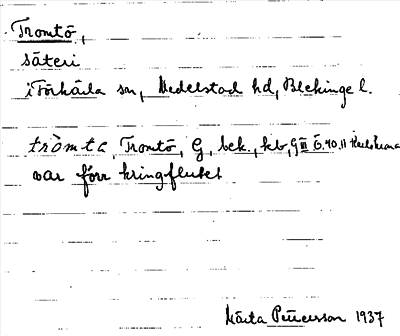 Tromtö,
säteri
i Förkärla sn, Medelstad hd, Blekinge l.
tròmtε, Tromtö, G, bek., kb, GIII Ö.40.11 Karlskrona
var förr kringflutet
Märta Petersson 1937